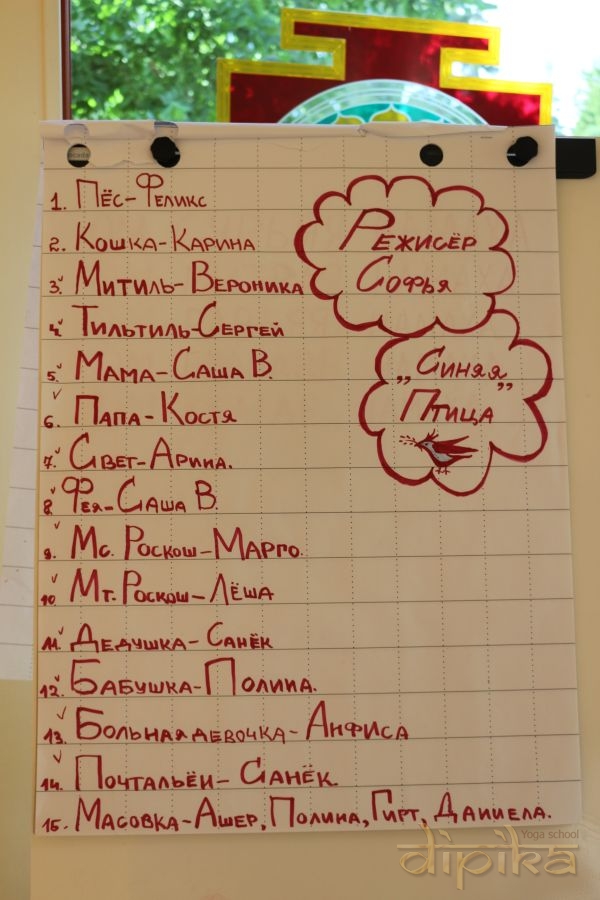 1. Пёс-Феликс
2. Кошка-Карина
3. Митиль-Вероника
4. Тильтиль-Сергей
5. Мама-Саша В.
6. Папа-Костя
7. Свет-Арина.
8. Фея-Саша В.
9. Мс. Роскош-Марго.
10. Мт. Роскош-Лёша
11. Дедушка-Санёк
12. Бабушка-Полина.
13. Больная девочка-Анфиса
14. Почтальён-Санёк.
15. Масовка-Ашер, Полина, Гирт, Даниела.
Режисёр
Софья
„Синяя
Птица”
Yoga school
dipika